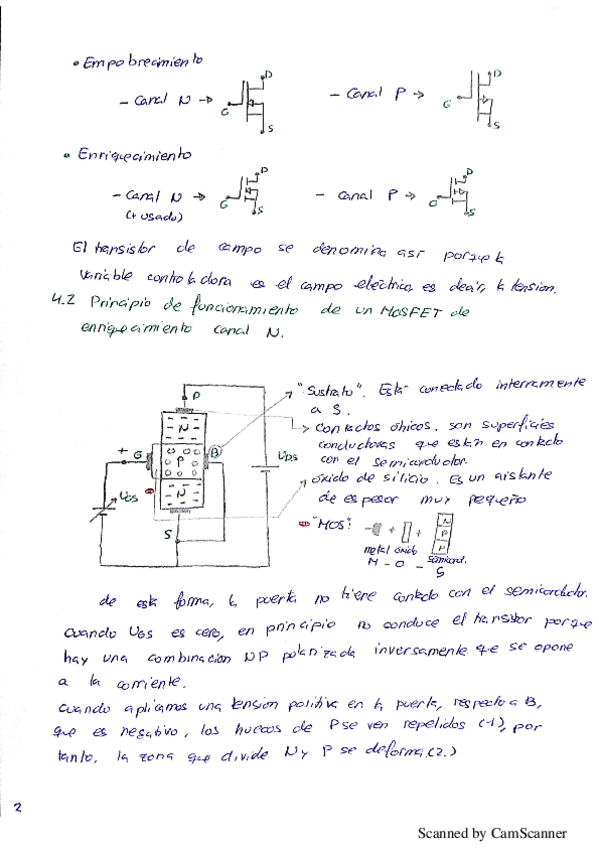 • Empobrecimiento
- Canal N → G D S
- Canal P → G D S
• Enriquecimiento
- Canal N → G D S
(+ usado)
- Canal P → G D S
El transistor de campo se denomina así porque la
variable controladora es el campo eléctrico, es decir, la tension.
4.2 Principio de funcionamiento de un MOSFET de
enriquecimiento canal N.
D
N
P
N
+ G
B
S
UGS
UDS
"Sustrato". Está conectado internamente
a S.
contactos óhicos. son superficies
conductoras que están en contacto
con el semiconductor.
óxido de silicio. Es un aislante
de espesor muy pequeño
"MOS":
+ +
N
P
N
metal óxido semicond.
M - O - S
de esta forma, la puerta no tiene contacto con el semiconductor.
Cuando UGS es cero, en principio no conduce el transistor porque
hay una combinación NP polarizada inversamente que se opone
a la corriente.
cuando aplicamos una tension positiva en la puerta, respecto a B,
que es negativo, los huecos de P se ven repelidos (1), por
tanto, la zona que divide N y P se deforma.(2.)
2
Scanned by CamScanner